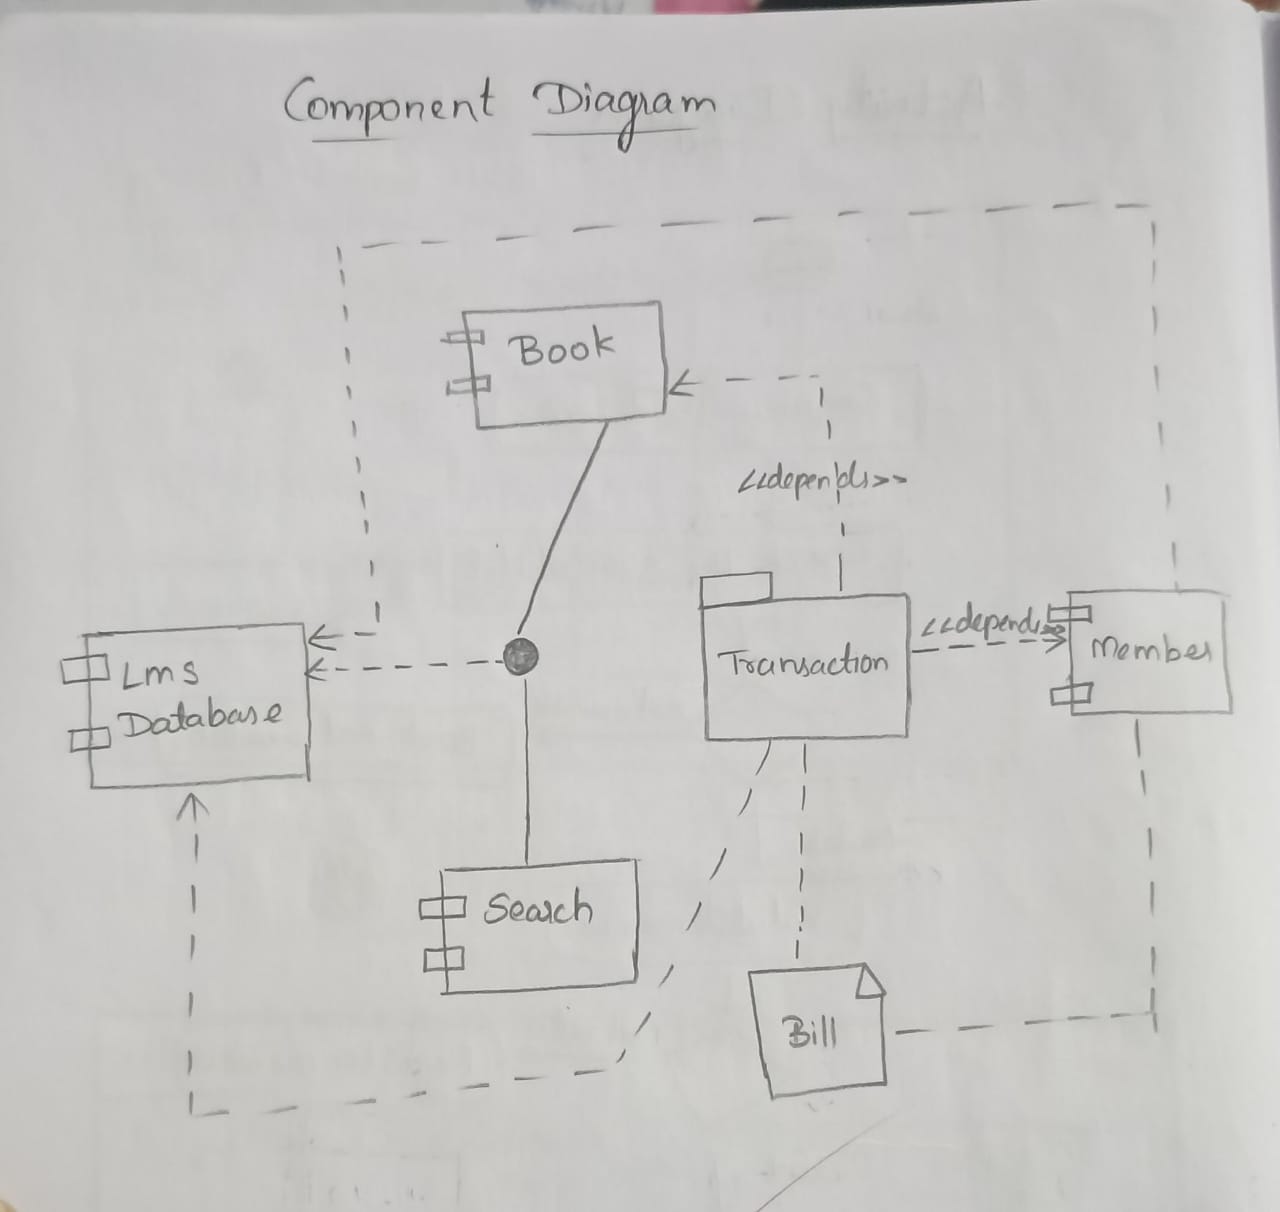 Component Diagram
Book
<<depends>>
Lms
Database
Transaction
<<depends>>
Member
Search
Bill